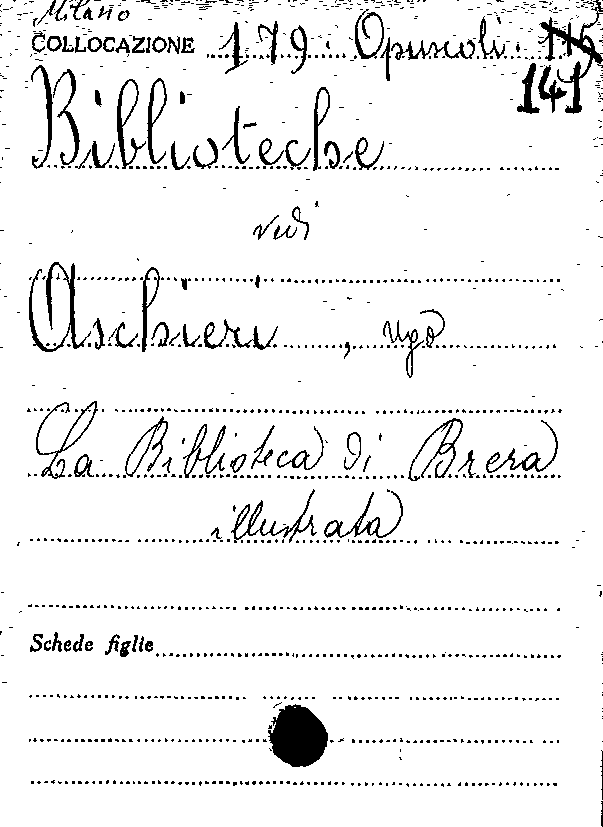 Milano
COLLOCAZIONE 179. Opuscoli. 115
141
Biblioteche
vedi
Aschieri, Ugo
La Biblioteca di Brera
illustrata
Schede figlie